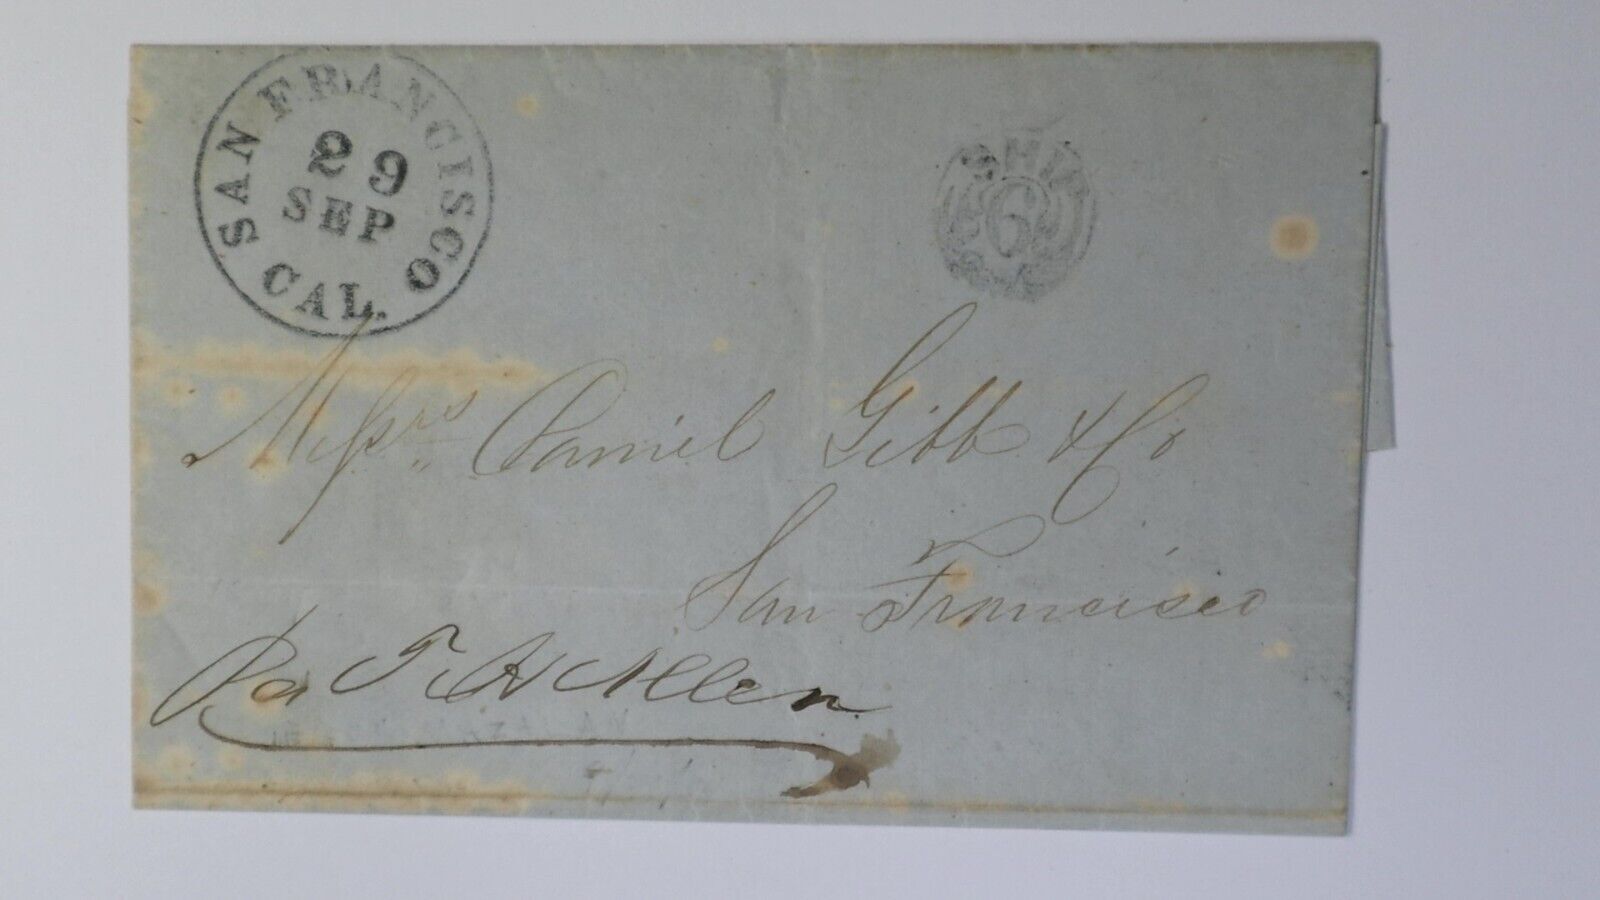 SAN FRANCISCO
29
SEP
CAL.
SHIP
6
Messrs Daniel Gibb & Co
San Francisco
Per T. H. Allen